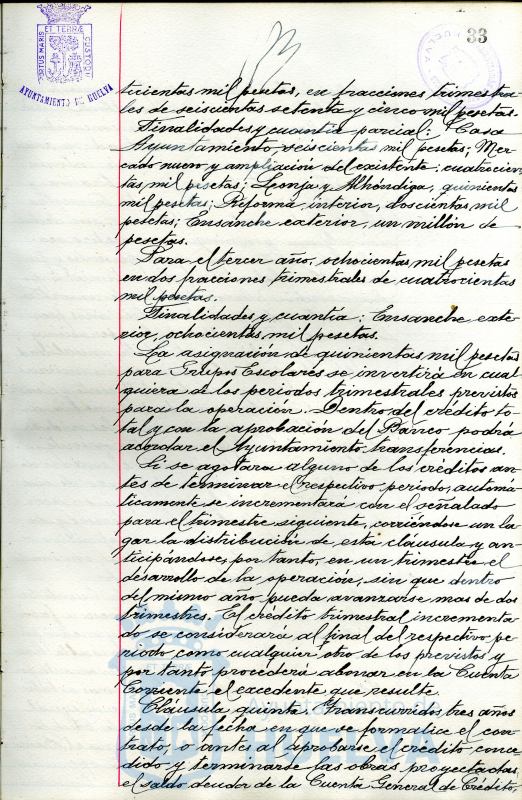 33
PORTUS MARIS ET TERRÆ CUSTODIA
AYUNTAMIENTO DE HUELVA
ticientas mil pesetas, en fracciones trimestra-
les de seiscientas setenta y cinco mil pesetas.
Finalidades y cuantía parcial: Casa
Ayuntamiento, seiscientas mil pesetas; Mer-
cado nuevo y ampliación del existente: cuatrocien-
tas mil pesetas; Leonja y Alhóndiga, quinientas
mil pesetas; Reforma interior, doscientas mil
pesetas; Ensanche exterior, un millón de
pesetas.
Para el tercer año, ochocientas mil pesetas
en dos fracciones trimestrales de cuatrocientas
mil pesetas.
Finalidades y cuantía: Ensanche exte-
rior, ochocientas mil pesetas.
La asignación de quinientas mil pesetas
para Grupos Escolares se invertirá en cual
quiera de los periodos trimestrales previstos
para la operación. Dentro del crédito to-
tal y con la aprobación del Banco podrá
acordar el Ayuntamiento transferencias.
Si se agotara alguno de los créditos an-
tes de terminar el respectivo periodo, automá-
ticamente se incrementará con el señalado
para el trimestre siguiente, corriéndose un lu
gar la distribución de esta cláusula y an-
ticipándose, por tanto, en un trimestre el
desarrollo de la operación, sin que dentro
del mismo año pueda avanzarse mas de dos
trimestres. El crédito trimestral incrementa-
do se considerará al final del respectivo pe-
riodo como cualquier otro de los previstos y
por tanto procederá abonar en la Cuenta
Corriente el excedente que resulte.
Cláusula quinta. Transcurridos tres años
desde la fecha en que se formalice el con-
trato, o antes al aprobarse el crédito conce-
dido y terminarse las obras proyectadas,
el saldo deudor de la Cuenta General de Crédito,
Ayuntamiento de
HUELVA